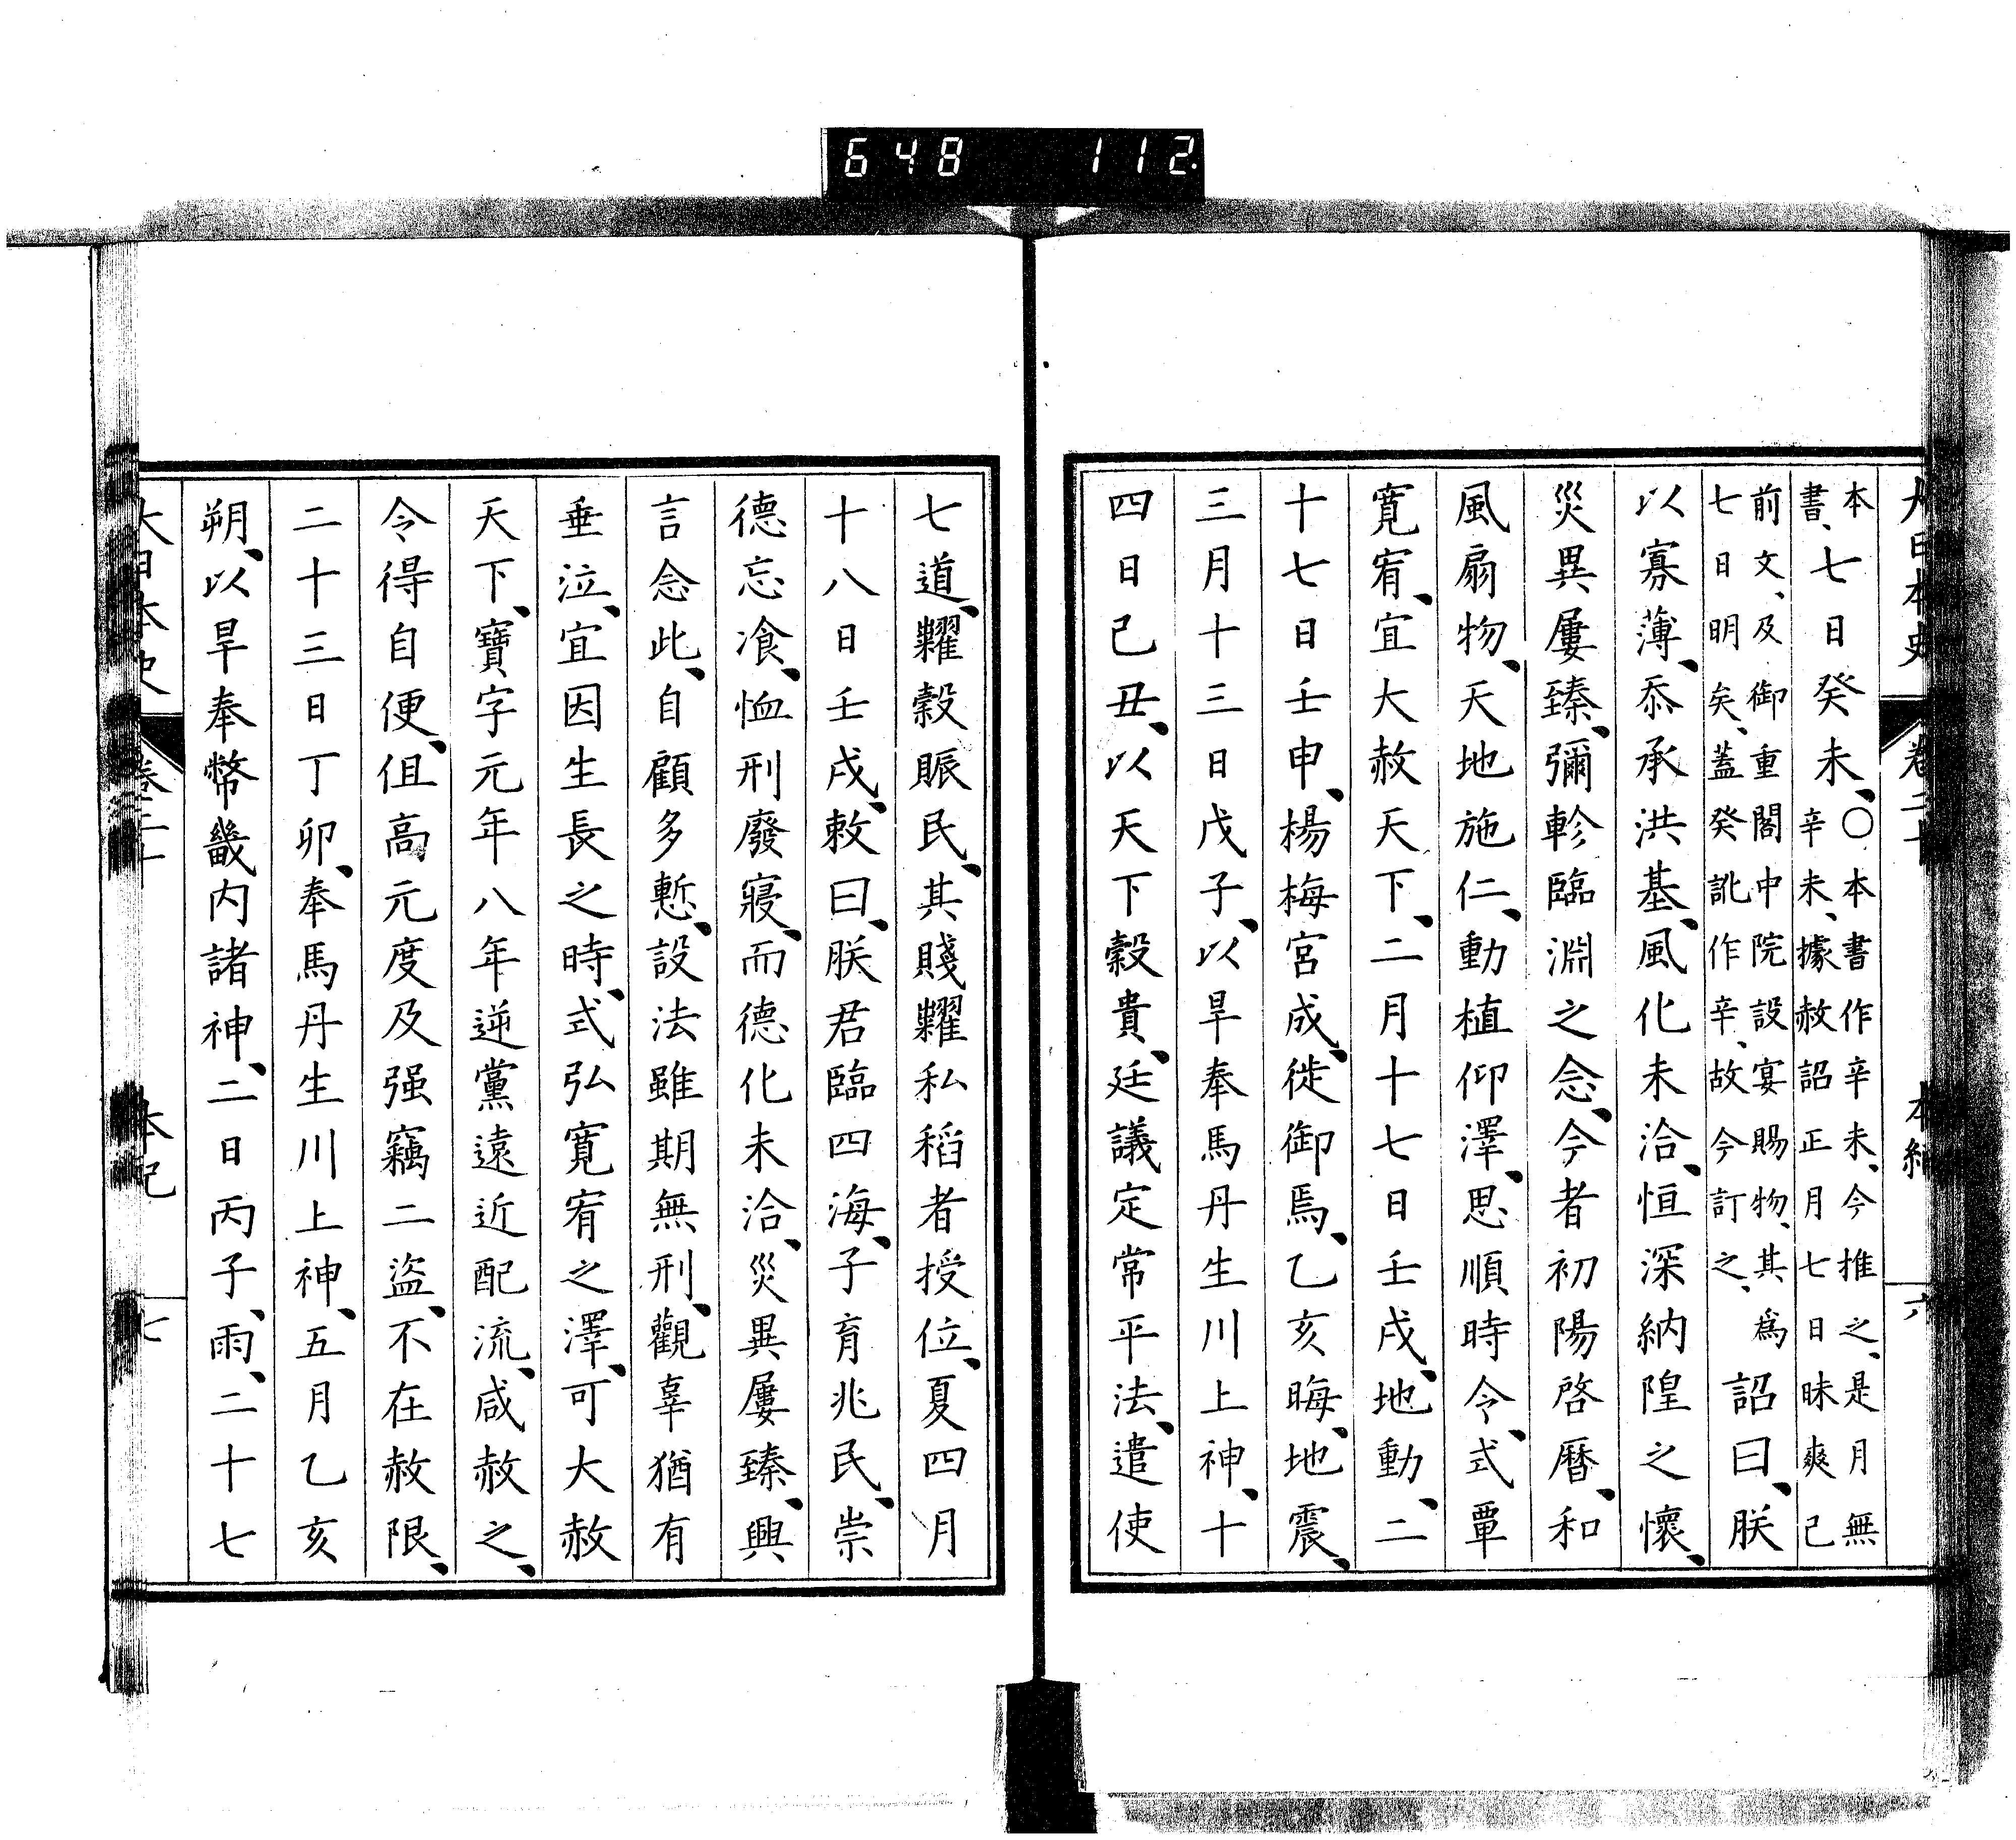 648 112
大日本史 卷二十 本紀 六
本書、七日癸未、○本書作辛未、今推之、是月無辛未、據赦詔正月七日昧爽已
前文、及御重閣中院設宴賜物、其爲七日明矣、蓋癸訛作辛、故今訂之、詔曰、朕
以寡薄、忝承洪基、風化未洽、恒深納隍之懷、
災異屢臻、彌軫臨淵之念、今者初陽啓曆、和
風扇物、天地施仁、動植仰澤、思順時令、式覃
寛宥、宜大赦天下、二月十七日壬戌、地動、二
十七日壬申、楊梅宮成、徙御焉、乙亥晦、地震、
三月十三日戊子、以旱奉馬丹生川上神、十
四日己丑、以天下穀貴、廷議定常平法、遣使
七道、糶穀賑民、其賤糶私稻者授位、夏四月
十八日壬戌、敕曰、朕君臨四海、子育兆民、崇
德忘飡、恤刑廢寢、而德化未洽、災異屢臻、興
言念此、自顧多慙、設法雖期無刑、觀辜猶有
垂泣、宜因生長之時、式弘寛宥之澤、可大赦
天下、寶字元年八年逆黨遠近配流、咸赦之、
令得自便、但高元度及强竊二盜、不在赦限、
二十三日丁卯、奉馬丹生川上神、五月乙亥
朔、以旱奉幣畿内諸神、二日丙子、雨、二十七
大日本史 卷二十 本紀 七